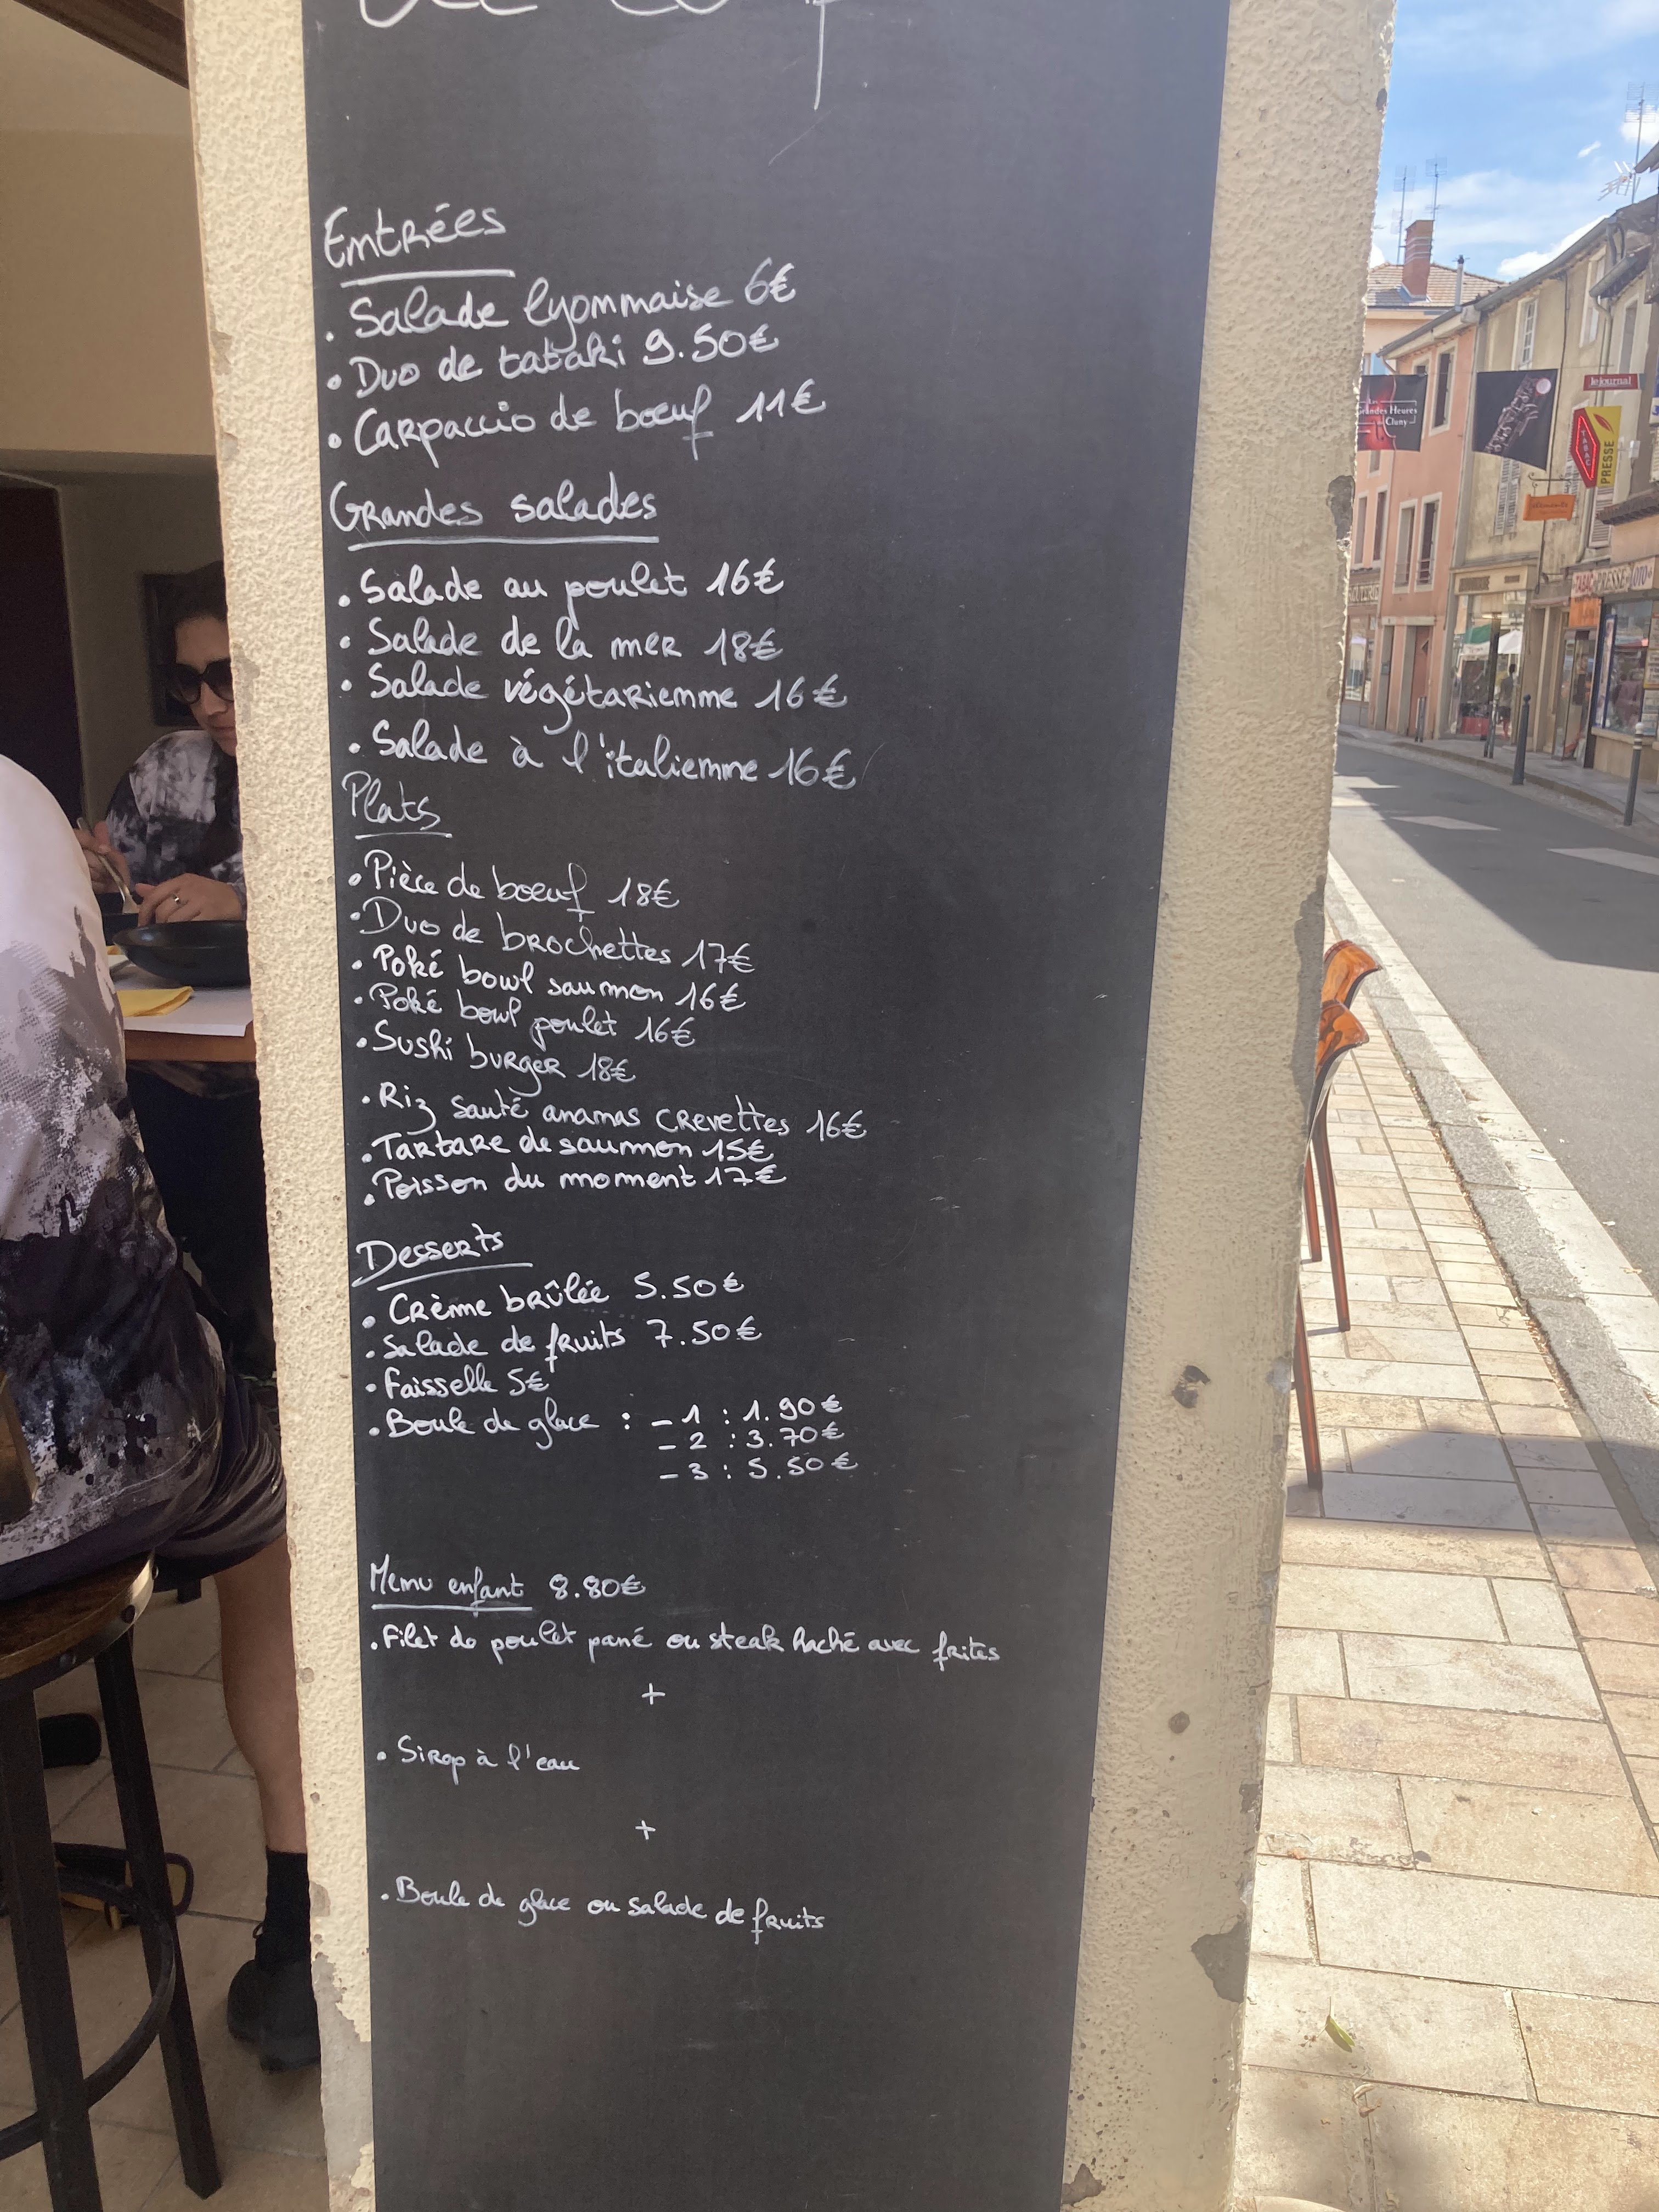 Entrées
. Salade lyonnaise 6€
. Duo de tataki 9.50€
. Carpaccio de bœuf 11€
Grandes salades
. Salade au poulet 16€
. Salade de la mer 18€
. Salade végétarienne 16€
. Salade à l'italienne 16€
Plats
. Pièce de bœuf 18€
. Duo de brochettes 17€
. Poké bowl saumon 16€
. Poké bowl poulet 16€
. Sushi burger 18€
. Riz sauté ananas crevettes 16€
. Tartare de saumon 15€
. Poisson du moment 17€
Desserts
. Crème brûlée 5.50€
. Salade de fruits 7.50€
. Faisselle 5€
. Boule de glace : - 1 : 1.90€
- 2 : 3.70€
- 3 : 5.50€
Menu enfant 8.80€
. Filet de poulet pané ou steak haché avec frites
+
. Sirop à l'eau
+
. Boule de glace ou salade de fruits
le journal
Grandes Heures
Cluny
TABAC
PRESSE
PRESSE